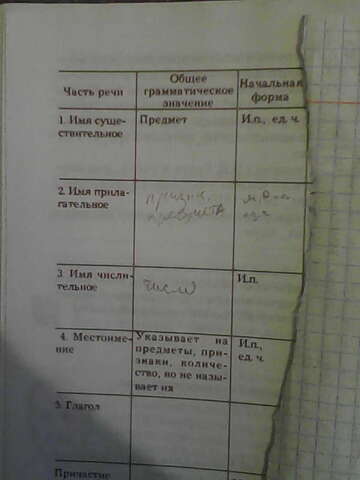 Часть речи
Общее
грамматическое
значение
Начальная
форма
1. Имя суще-
ствительное
Предмет
И.п., ед. ч.
2. Имя прила-
гательное
признак
предмета
3. Имя числи-
тельное
число
И.п.
4. Местоиме-
ние
Указывает на
предметы, при-
знаки, количе-
ство, но не назы-
вает их
И.п.,
ед. ч.
5. Глагол
Причастие